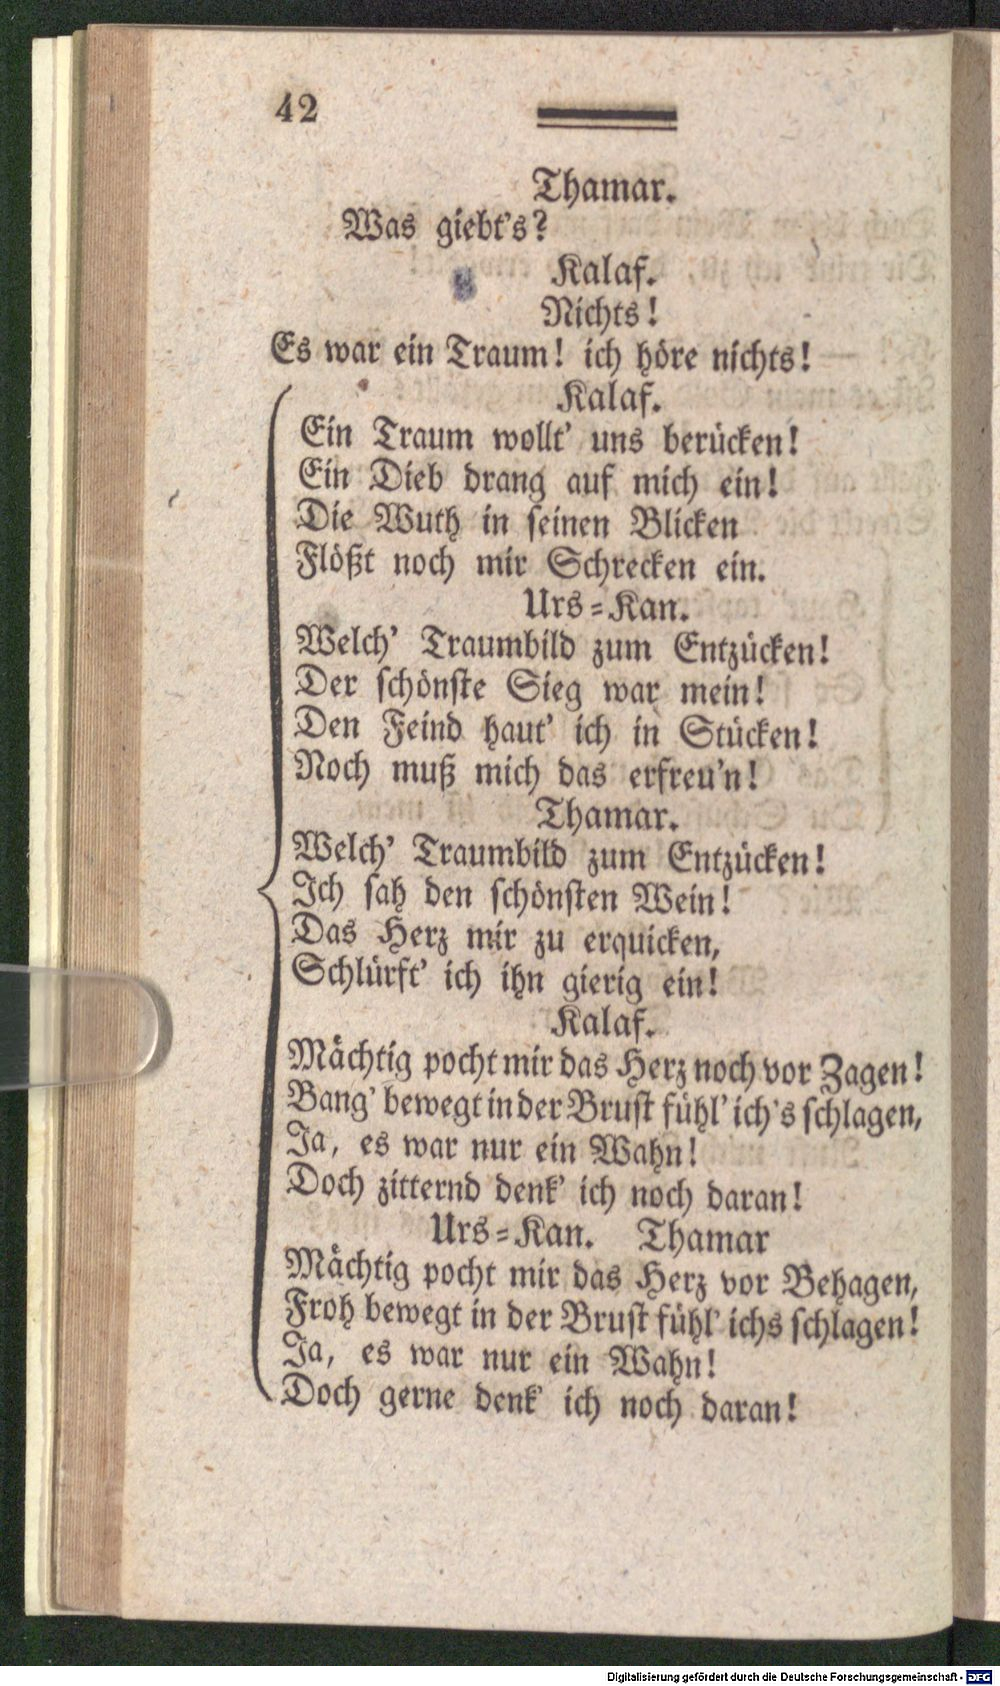 42
Thamar.
Was giebt's?
Kalaf.
Nichts!
Es war ein Traum! ich höre nichts!
Kalaf.
Ein Traum wollt' uns berücken!
Ein Dieb drang auf mich ein!
Die Wuth in seinen Blicken
Flößt noch mir Schrecken ein.
Urs=Kan.
Welch' Traumbild zum Entzücken!
Der schönste Sieg war mein!
Den Feind haut' ich in Stücken!
Noch muß mich das erfreu'n!
Thamar.
Welch' Traumbild zum Entzücken!
Ich sah den schönsten Wein!
Das Herz mir zu erquicken,
Schlürft' ich ihn gierig ein!
Kalaf.
Mächtig pocht mir das Herz noch vor Zagen!
Bang' bewegt in der Brust fühl' ich's schlagen,
Ja, es war nur ein Wahn!
Doch zitternd denk' ich noch daran!
Urs=Kan. Thamar
Mächtig pocht mir das Herz vor Behagen,
Froh bewegt in der Brust fühl' ichs schlagen!
Ja, es war nur ein Wahn!
Doch gerne denk' ich noch daran!
Digitalisierung gefördert durch die Deutsche Forschungsgemeinschaft - DFG